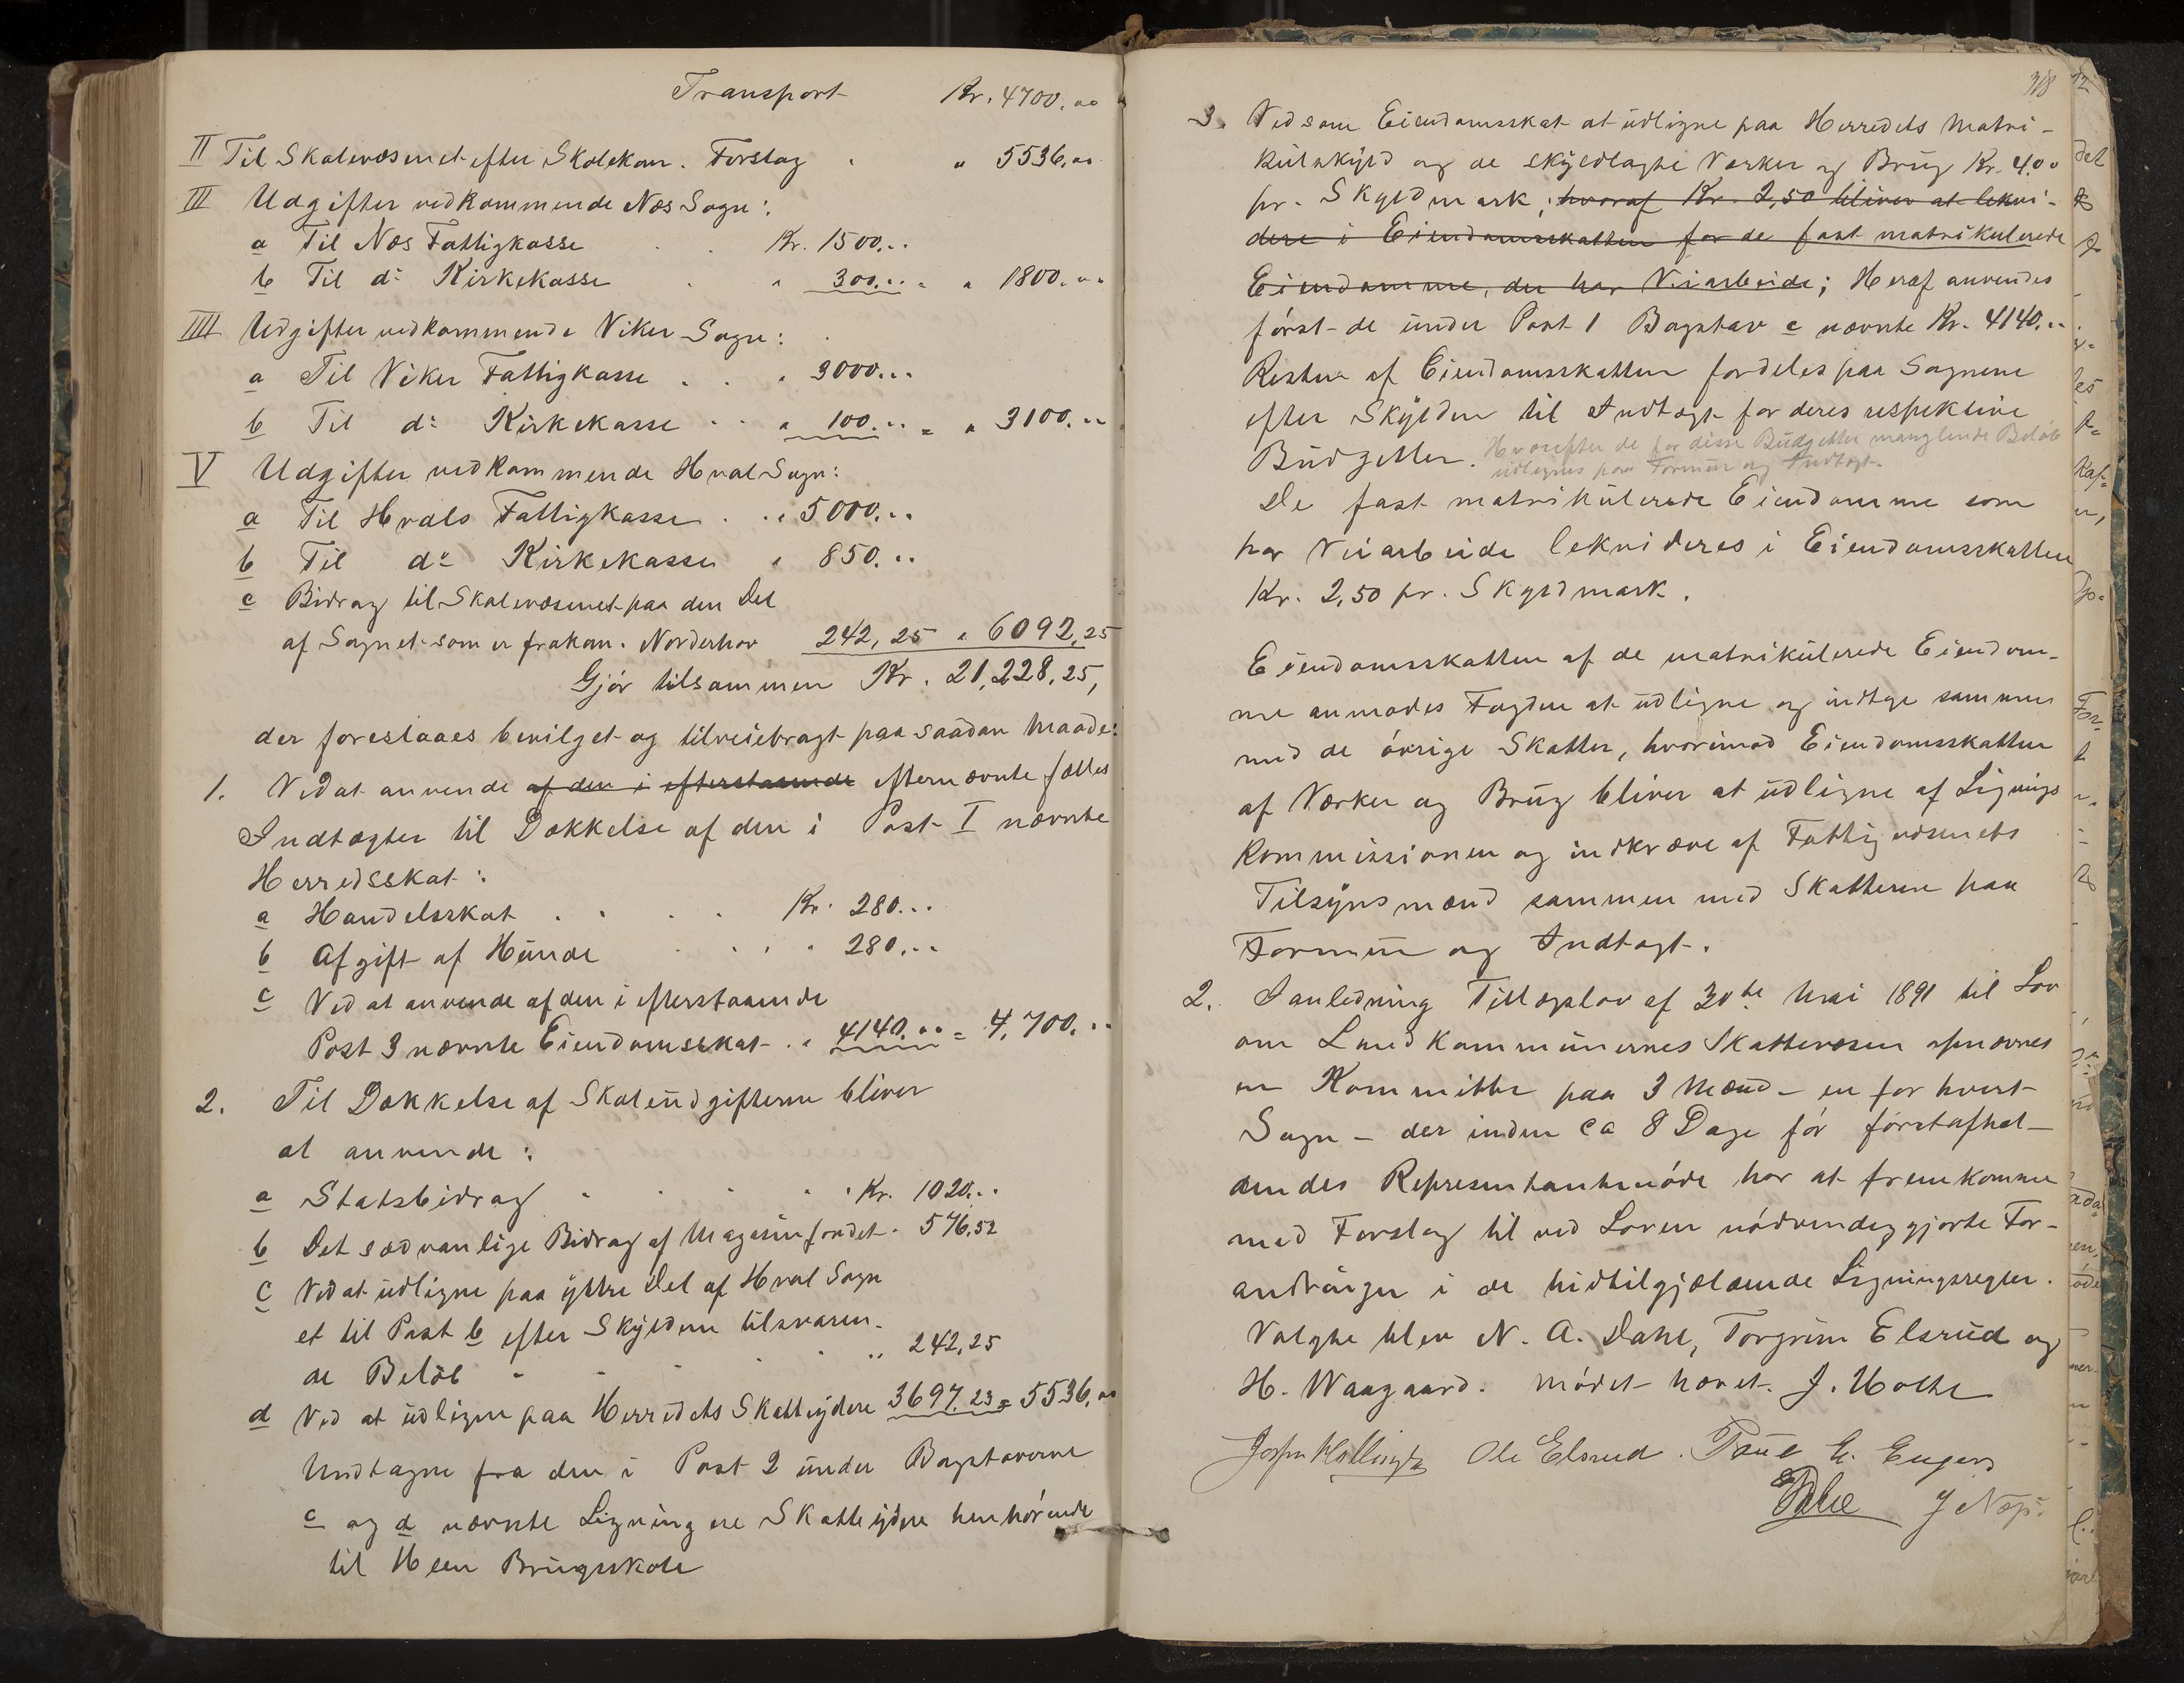 Transport Kr. 4700.00
II Til Skolevæsenet efter Skolekom. Forslag " 5536,00
III Udgifter vedkommende Næs Sogn:
a Til Næs Fattigkasse Kr. 1500...
b Til do Kirkekasse " 300... = " 1800...
IIII Udgifter vedkommende Viker Sogn:
a Til Viker Fattigkasse " 3000...
b Til do Kirkekasse " 100... = " 3100...
V Udgifter vedkommende Hval Sogn:
a Til Hvals Fattigkasse " 5000...
b Til do Kirkekasse " 850...
c Bidrag til Skolevæsenet paa den Del
af Sognet som er frakom. Norderhov 242,25 " 6092,25
Gjør tilsammen Kr. 21,228,25,
der foreslaaes bevilget og tilveiebragt paa saadan Maade:
1. Ved at anvende af den i efterstaaende efternævnte fælles
Indtægter til Dækkelse af den i Post I nævnte
Herredsskat:
a Handelsskat Kr. 280...
b Afgift af Hunde " 280...
c Ved at anvende af den i efterstaaende
Post 3 nævnte Eiendomsskat " 4140... = 4,700...
2. Til Dækkelse af Skoleudgifterne bliver
at anvende:
a Statsbidrag Kr. 1020...
b Det sædvanlige Bidrag af Magasinfondet " 576,52
c Ved at udligne paa ydre Del af Hval Sogn
et til Post b efter Skylden tilsvaren-
de Beløb " 242,25
d Ved at udligne paa Herredets Skatteydere 3697,23 = 5536,00
Undtagne fra den i Post 2 under Bogstaverne
c og d nævnte Ligning ere Skatteydere henhørende
til Heen Brugsskole
318
3. Ved som Eiendomsskat at udligne paa Herredets Matri-
kulskyld og de skyldlagte Værker og Brug Kr. 4,00
pr. Skyldmark; hvoraf Kr. 2,50 bliver at lekvi-
dere i Eiendomsskatten for de fast matrikulerede
Eiendomme, der har Veiarbeide; Heraf anvendes
først de under Post 1 Bogstav c nævnte Kr. 4140...
Resten af Eiendomsskatten fordeles paa Sognene
efter Skylden til Indtægt for deres respektive
Budgetter. Hvorefter de for disse Budgetter manglende Beløb
udlignes paa Formue og Indtægt.
De fast matrikulerede Eiendomme som
har Veiarbeide lekvideres i Eiendomsskatten
Kr. 2,50 pr. Skyldmark.
Eiendomsskatten af de matrikulerede Eiendom-
me anmodes Fogden at udligne og indtage sammen
med de øvrige Skatter, hvorimod Eiendomsskatten
af Værker og Brug bliver at udligne af Lignings
kommissionen og indkræve af Fattigvæsenets
Tilsynsmænd sammen med Skatterne paa
Formue og Indtægt.
2. I anledning Tillægslov af 30te Mai 1891 til Lov
om Landkommunernes Skattevæsen opnævnes
en Kommitte paa 3 Mænd – en for hvert
Sogn – der inden ca 8 Dage før førstafhol-
dendes Repræsentantmøde har at fremkomme
med Forslag til ved Loven nødvendiggjorte For-
andringer i de hidtilgjældende Ligningsregler.
Valgte blev N. A. Dahl, Torgrim Elsrud og
H. Waagaard. Mødet hævet. J. Holte
Ole Elsrud. Poul